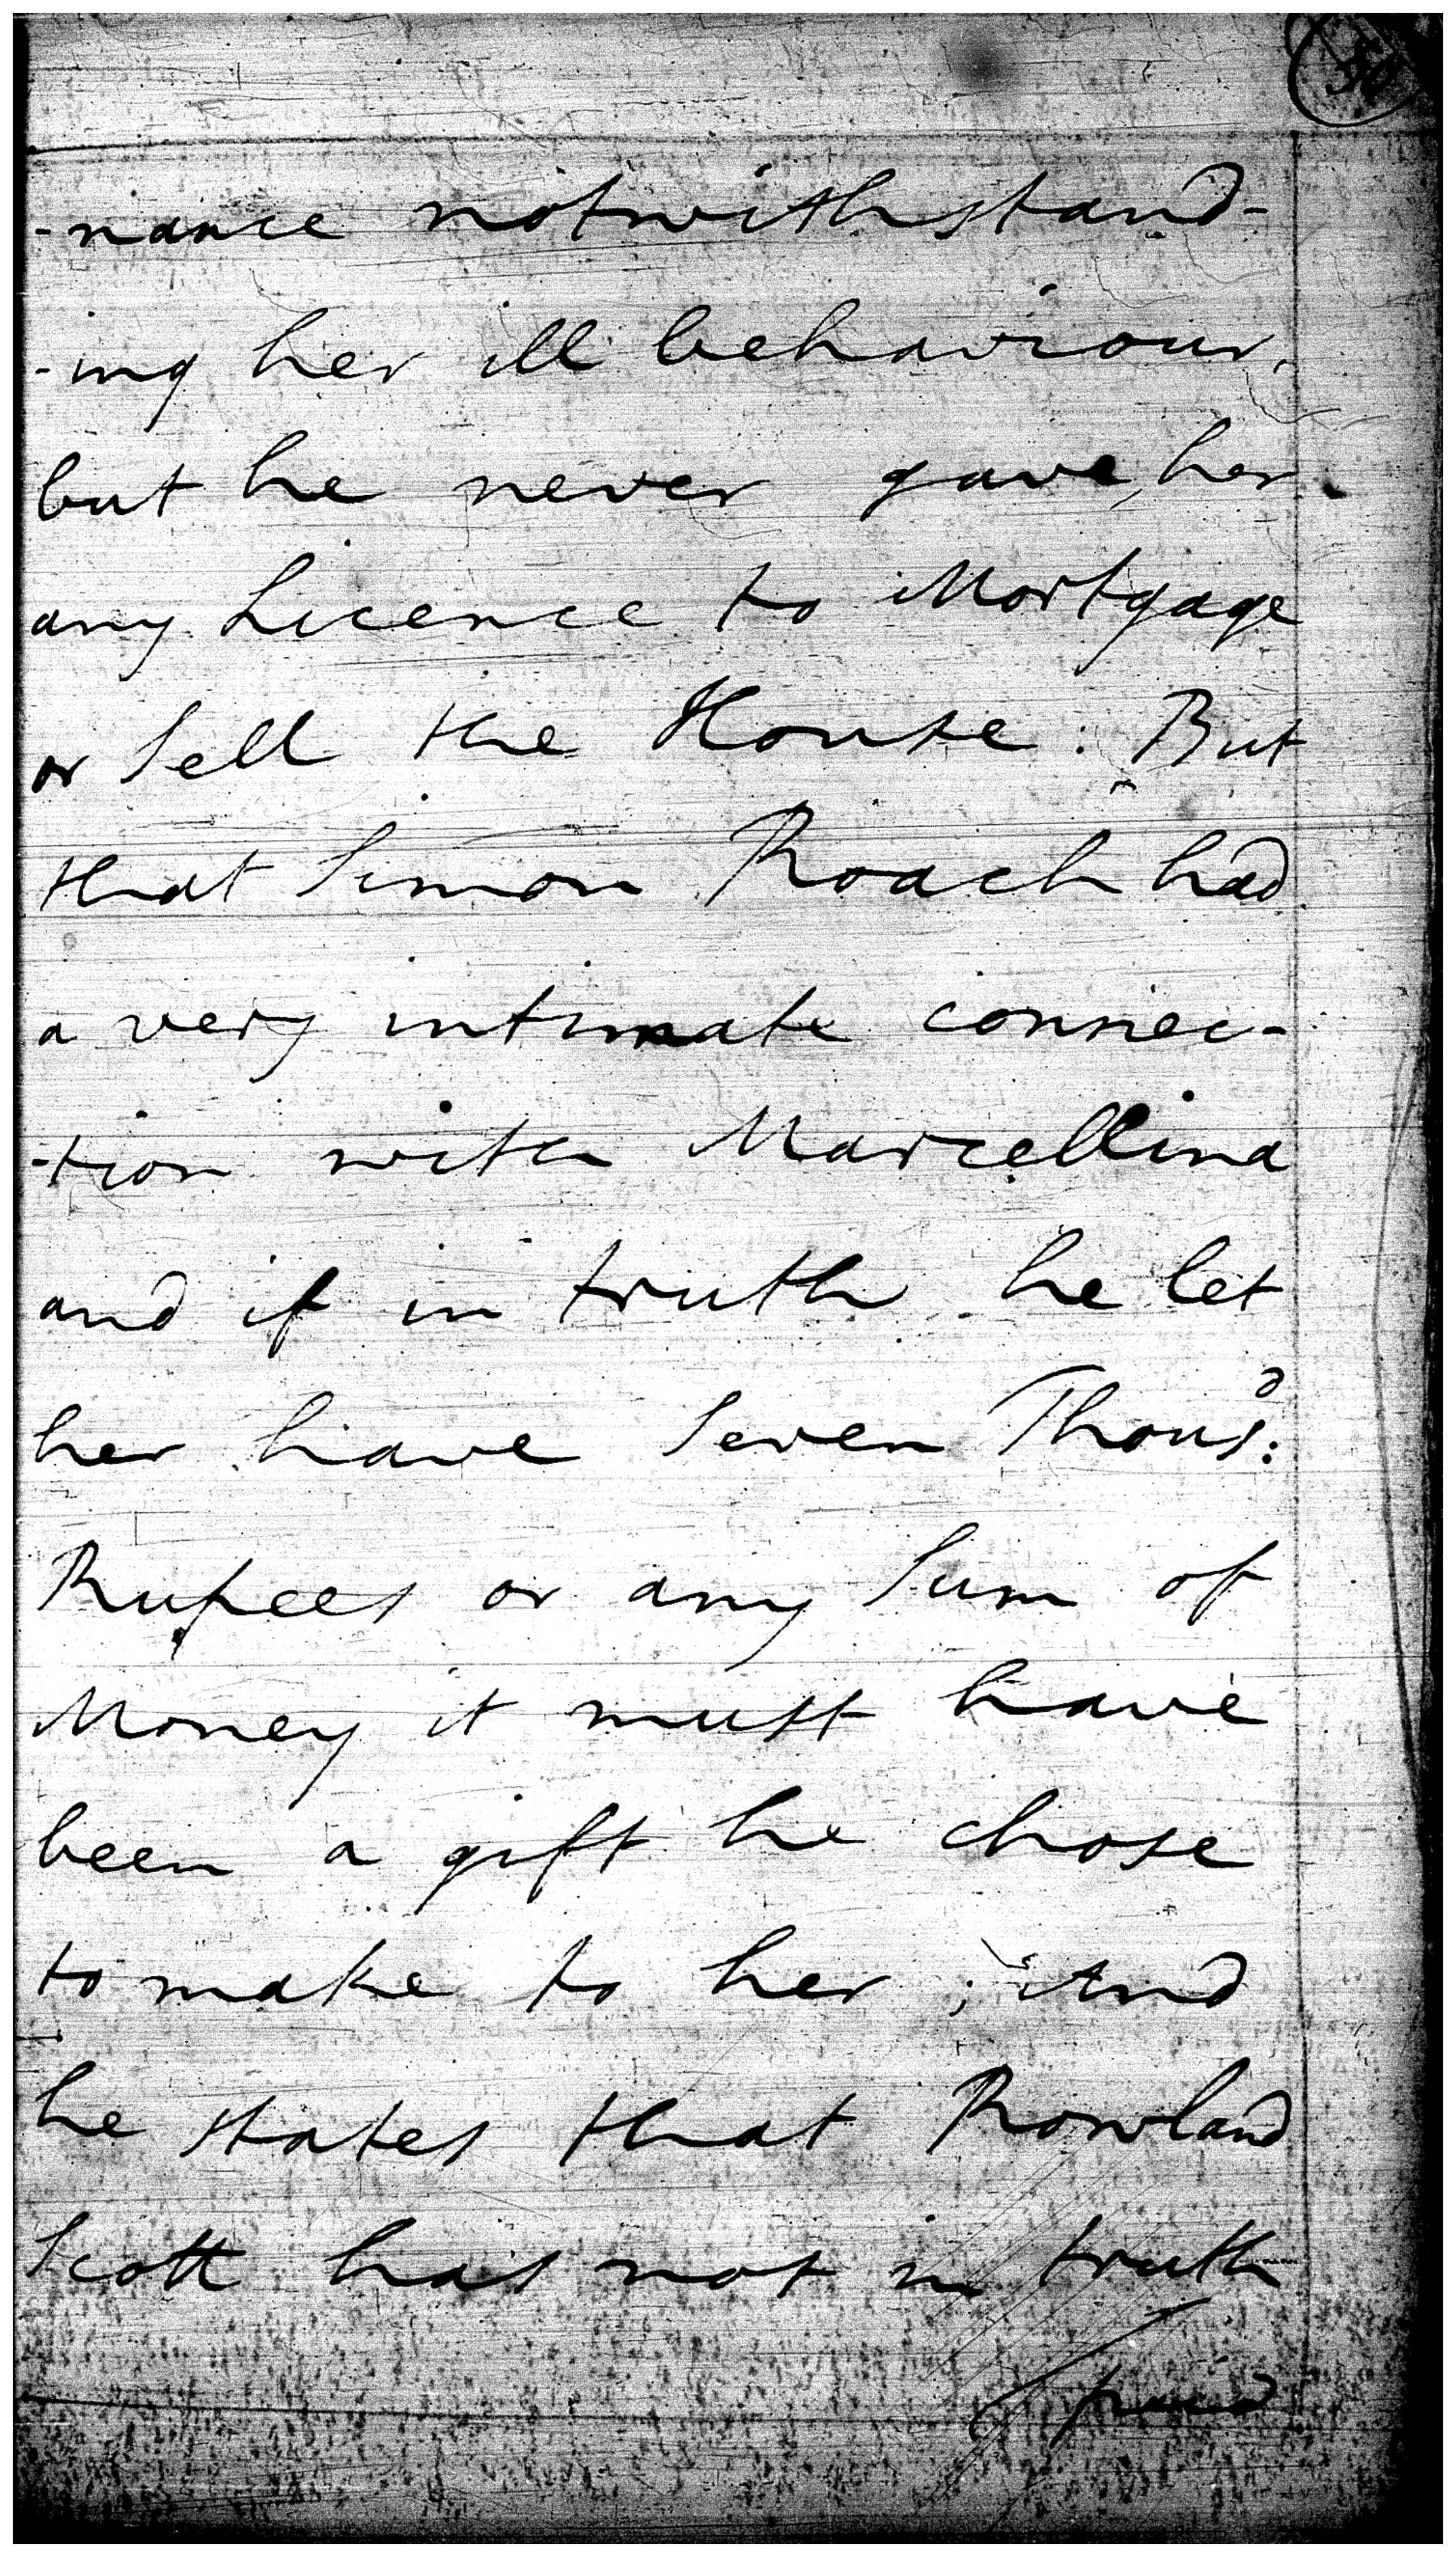 50
-nance notwithstand-
-ing her ill behaviour,
but he never gave her
any Licence to Mortgage
or Sell the House : But
that Simon Roach had
a very intimate connec-
-tion with Marcellina
and if in truth he let
her have Seven Thousd:
Rupees or any Sum of
Money it must have
been a gift he chose
to make to her ; And
he states that Rowland
Scott has not in truth
paid